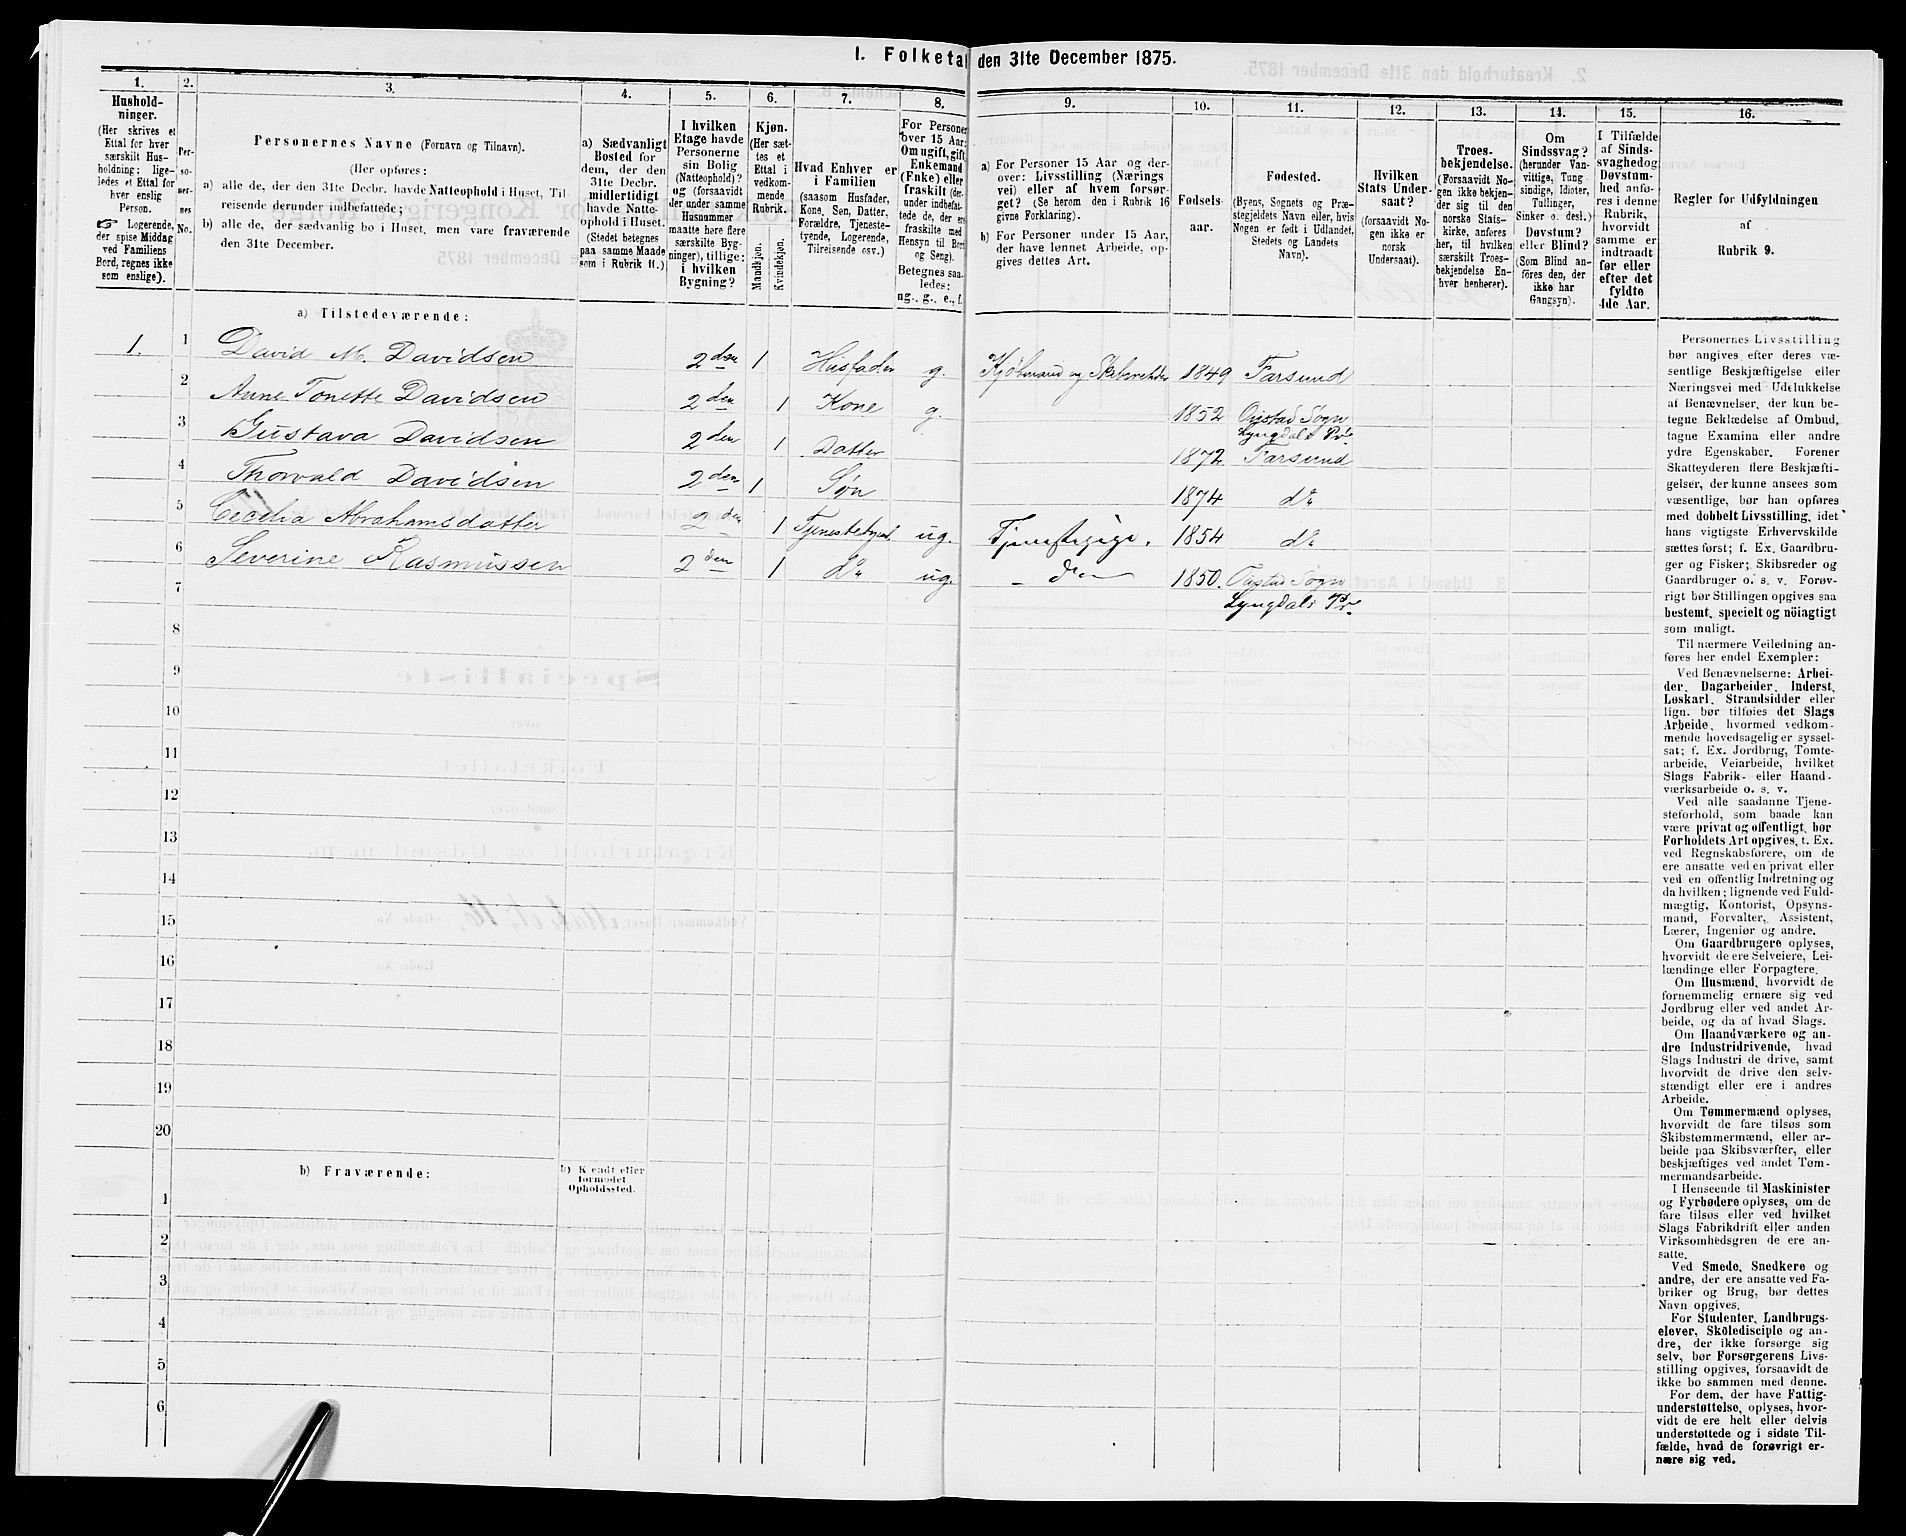 1. Folketal den 31te December 1875.
1. 2. 3. 4. 5. 6. 7. 8. 9. 10. 11. 12. 13. 14. 15. 16.
Hushold-
ninger.
(Her skrives et
Ettal for hver
særskilt Hus-
holdning; lige-
ledes et Ettal for
hver enslig
Person.
☞ Logerende,
der spise Middag
ved Familiens
Bord, regnes ikke
som enslige).
Per-
so-
ner-
nes
No.
Personernes Navne (Fornavn og Tilnavn).
(Her opføres:
a) alle de, der den 31te Decbr. havde Natteophold i Huset, Til-
reisende derunder indbefattede;
b) alle de, der sædvanlig bo i Huset, men vare fraværende
den 31te December.
a) Sædvanligt
Bosted for
dem, der den
31te Decbr.
midlertidigt
havde Natte-
ophold i Huset.
(Stedet betegnes
paa samme Maade
som i Rubrik 11.)
I hvilken
Etage havde
Personerne
sin Bolig
(Natteophold)?
og (forsaavidt
der under samme
Husnummer
maatte høre flere
særskilte Byg-
ninger), tillige:
i hvilken
Bygning?
Kjøn.
(Her sæt-
tes et
Ettal i
vedkom-
mende
Rubrik.
Mandkjøn.
Kvindekjøn.
Hvad Enhver er
i Familien
(saasom Husfader,
Kone, Søn, Datter,
Forældre, Tjeneste-
tyende, Logerende,
Tilreisende osv.)
For Personer
over 15 Aar:
Om ugift, gift,
Enkemand
(Enke) eller
fraskilt (der-
under indbefat-
tede de, der ere
fraskilte med
Hensyn til Bord
og Seng).
Betegnes saa-
ledes:
ug., g., e., f.
a) For Personer 15 Aar og der-
over: Livsstilling (Nærings
vei) eller af hvem forsør-
get? (Se herom den i Rubrik 16
givne Forklaring).
b) For Personer under 15 Aar,
der have lønnet Arbeide, op-
gives dettes Art.
Fødsels-
aar.
Fødested.
(Byens, Sognets og Præ-
stegjeldets Navn eller, hvis
Nogen er født i Udlandet,
Stedets og Landets
Navn).
Hvilken
Stats Under-
saat?
(forsaavidt No-
gen ikke er
norsk
Undersaat).
Troes-
bekjendelse.
(Forsaavidt No-
gen ikke bekjen-
der sig til den
norske Stats-
kirke, anføres
her, til hvilken
særskilt Troes-
bekjendelse En-
hver henhører).
Om
Sindssvag?
(herunder Van-
vittige, Tung-
sindige, Idioter,
Tullinger,
Sinker o. desl.)
Døvstum?
eller Blind?
(Som Blind an-
føres den, der
ikke har
Gangsyn).
I Tilfælde
af Sinds-
svaghed og
Døvstum-
hed anfø-
res i denne
Rubrik,
hvorvidt
samme er
indtraadt
før eller
efter det
fyldte
4de Aar.
Regler for Udfyldningen
af
Rubrik 9.
a) Tilstedeværende:
1. 1 David M. Davidsen 2den 1 Husfader g. Kjøbmand og Skibsreder 1849 Farsund
2 Anne Tonette Davidsen 2den 1 Kone g. 1852 Sogn
Lyngdals Pr.
3 Gustava Davidsen 2den 1 Datter 1872 Farsund
4 Thorvald Davidsen 2den 1 Søn 1874 do
5 Cecelia Abrahamsdatter 2den 1 ug. Tjenestepige. 1854 do
6 Severine Rasmussen 2den 1 do ug. 1850. Sogn
Lyngdals Pr.
7
8
9
10
11
12
13
14
15
16
17
18
19
20
b) Fraværende:
b) Kjendt eller
formodet
Opholdssted.
1
2
3
4
5
6
Personernes Livsstilling
bør angives efter deres væ-
sentlige Beskjæftigelse eller
Næringsvei med Udelukkelse
af Benævnelser, der kun be-
tegne Beklædelse af Ombud,
tagne Examina eller andre
ydre Egenskaber. Forener
Skatteyderen flere Beskjæfti-
gelser, der kunne ansees som
væsentlige, bør han opføres
med dobbelt Livsstilling, idet
hans vigtigste Erhvervskilde
sættes først; f. Ex. Gaardbru-
ger og Fisker; Skibsreder og
Gaardbruger o. s. v. Forøv-
rigt bør Stillingen opgives saa
bestemt, specielt og nöiagtigt
som muligt.
Til nærmere Veiledning an-
føres her endel Exempler:
Ved Benævnelserne: Arbei-
der, Dagarbeider, Inderst,
Løskarl, Strandsidder eller
lign. bør tilføies det Slags
Arbeide, hvormed vedkom-
mende hovedsagelig er syssel-
sat; f. Ex. Jordbrug, Tomte-
arbeide, Veiarbeide, hvilket
Slags Fabrik- eller Haand-
værksarbeide o. s. v.
Ved alle saadanne Tjene-
steforhold, som baade kan
være privat og offentligt, bør
Forholdets Art opgives, t. Ex.
ved Regnskabsførere, om de
ere ansatte ved en privat eller
ved en offentlig Indretning og
da hvilken; lignende ved Fuld-
mægtig, Kontorist, Opsyns-
mand, Forvalter, Assistent,
Lærer, Ingeniør og andre.
Om Gaardbrugere oplyses,
hvorvidt de ere Selveiere, Lei-
lændinge eller Forpagtere.
Om Husmænd, hvorvidt de
fornemmelig ernære sig ved
Jordbrug eller ved andet Ar-
beide, og da af hvad Slags.
Om Haandværkere og an-
dre Industridrivende, hvad
Slags Industri de drive, samt
hvorvidt de drive den selv-
stændigt eller ere i andres
Arbeide.
Om Tømmermænd oplyses,
hvorvidt de fare tilsøs som
Skibstømmermænd, eller ar-
beide paa Skibsværfter, eller
beskjæftiges ved andet Tøm-
mermandsarbeide.
I Henseende til Maskinister
og Fyrbødere oplyses, om de
fare tilsøs eller ved hvilket
Slags Fabrikdrift eller anden
Virksomhedsgren de ere an-
satte.
Ved Smede, Snedkere og
andre, der ere ansatte ved Fa-
briker og Brug, bør dettes
Navn opgives.
For Studenter, Landbrugs-
elever, Skoledisciple og an-
dre, der ikke forsørge sig
selv, bør Forsørgerens Livs-
stilling opgives, forsaavidt de
ikke bo sammen med denne.
For dem, der have Fattig-
understøttelse, oplyses, hvor-
vidt de ere helt eller delvis
understøttede og i sidste Til-
fælde, hvad de forøvrigt er-
nære sig ved.